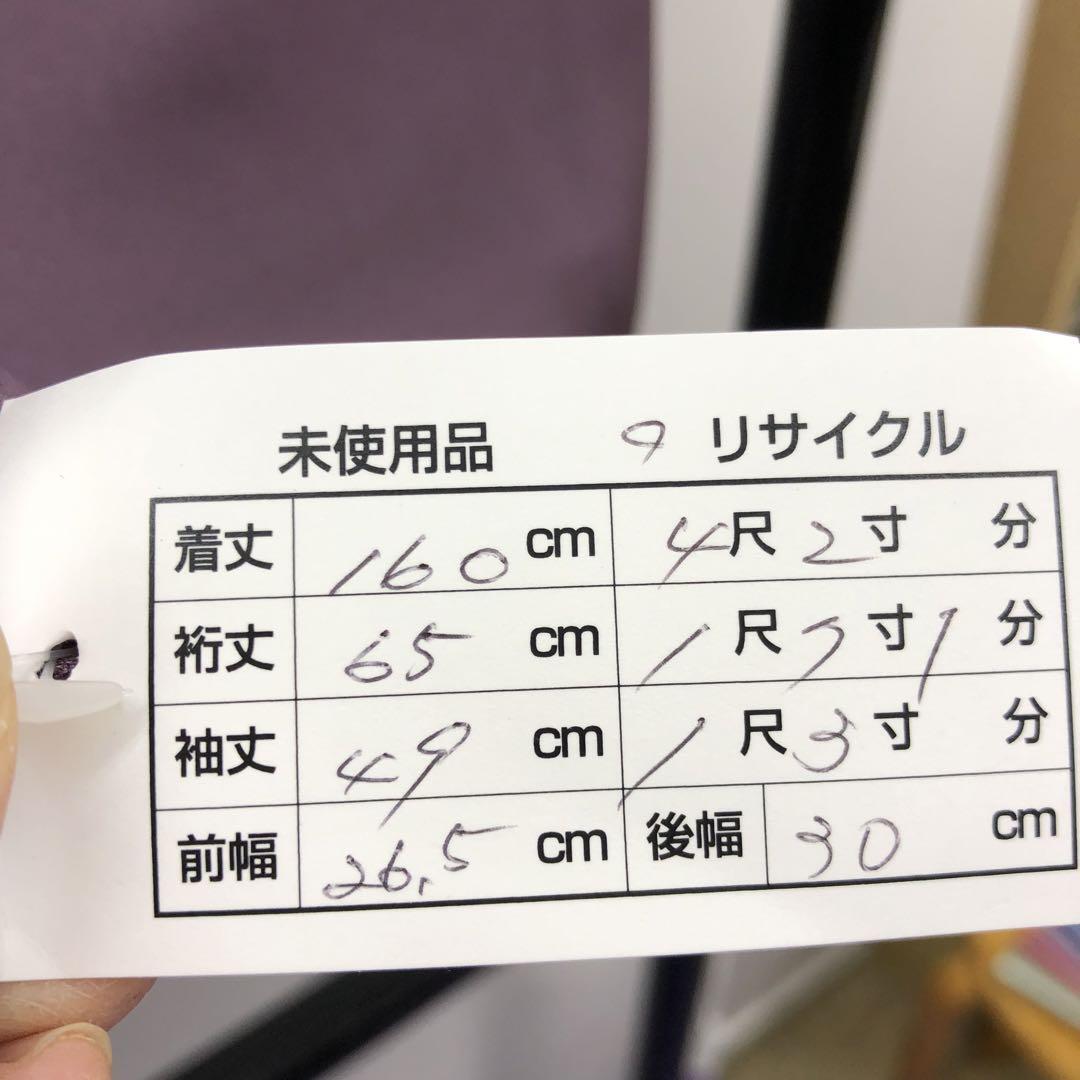 未使用品 9 リサイクル
着丈 160 cm 4尺 2寸 分
裄丈 65 cm 1尺 7寸 1分
袖丈 49 cm 1尺 3寸 分
前幅 26.5 cm 後幅 30 cm